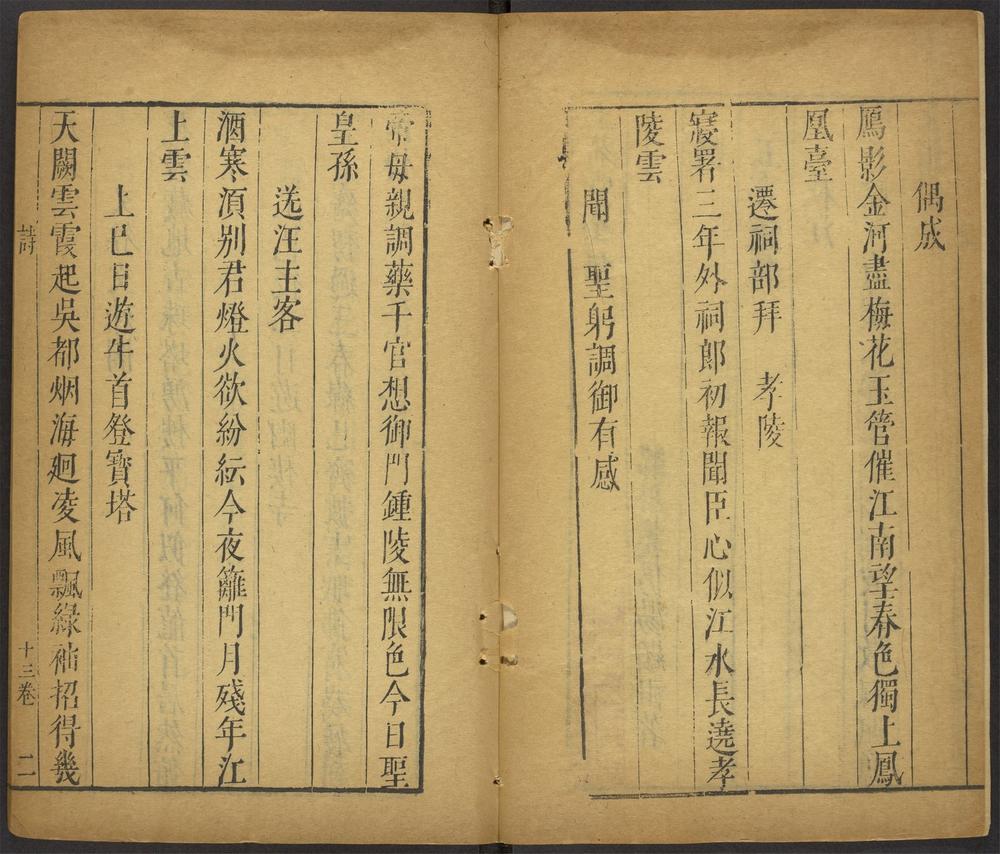 偶成
鴈影金河盡梅花玉管催江南望春色獨上鳳
凰臺
遷祠部拜　孝陵
寢署三年外祠郎初報聞臣心似江水長遶孝
陵雲
聞　聖躬調御有感
帝母親調藥千官想御門鍾陵無限色今日聖
皇孫
送汪主客
酒寒須别君燈火欲紛紜今夜籬門月殘年江
上雲
上巳日遊牛首登寶塔
天闕雲霞起吳都烟海廻凌風飄緑袖招得幾
詩
十三卷
二